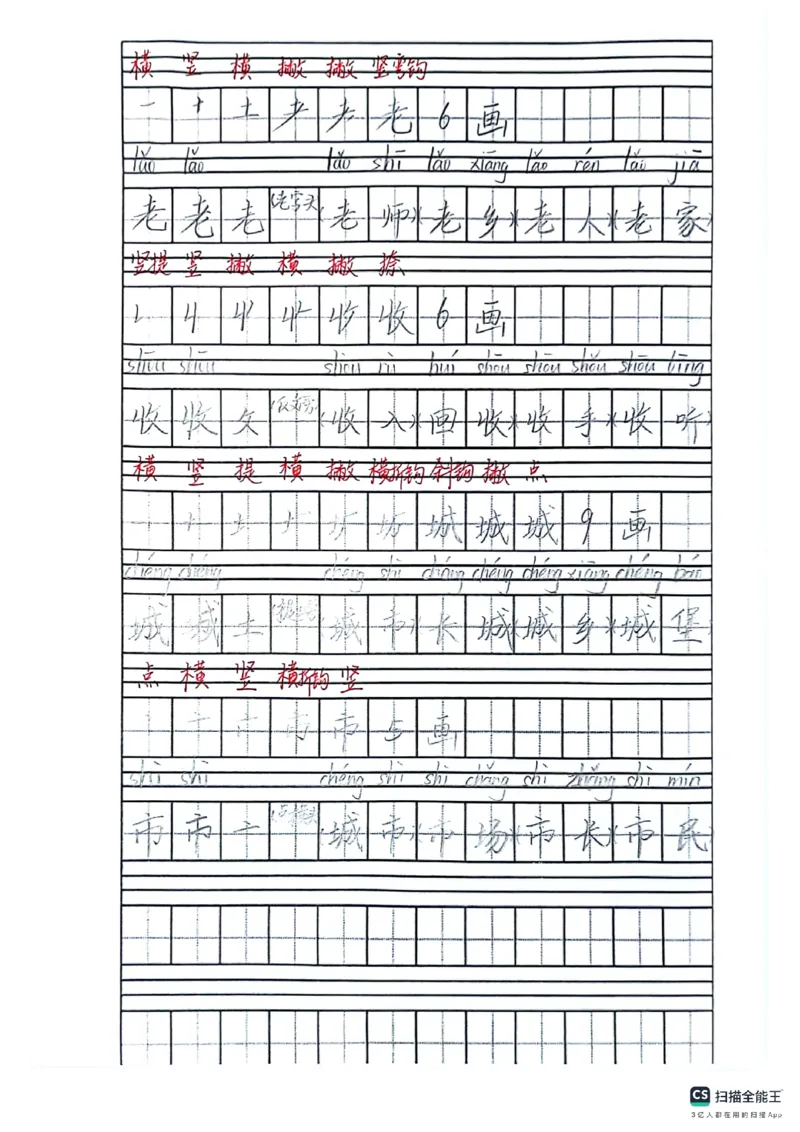 横 竖 横 撇 撇 竖弯钩
一 十 土 耂 老 老 6 画
lǎo lǎo lǎo shī lǎo xiāng lǎo rén lǎo jiā
老 老 老 (老字头) (老师)(老乡)(老人)(老家)
竖提 竖 撇 横 撇 捺
收 6 画
shōu shōu shōu rù huí shōu shōu shǒu shōu tīng
收 收 攵 (反文旁) (收入)(回收)(收手)(收听)
横 竖 提 横 撇 横折钩 斜钩 撇 点
城 城 城 9 画
chéng chéng chéng shì cháng chéng chéng xiāng chéng bǎo
城 城 土 (提土旁) (城市)(长城)(城乡)(城堡)
点 横 竖 横折钩 竖
丶 亠 市 5 画
shì shì chéng shì shì chǎng shì zhǎng shì mín
市 市 亠 (点横头) (城市)(市场)(市长)(市民)
CS 扫描全能王
3亿人都在用的扫描App